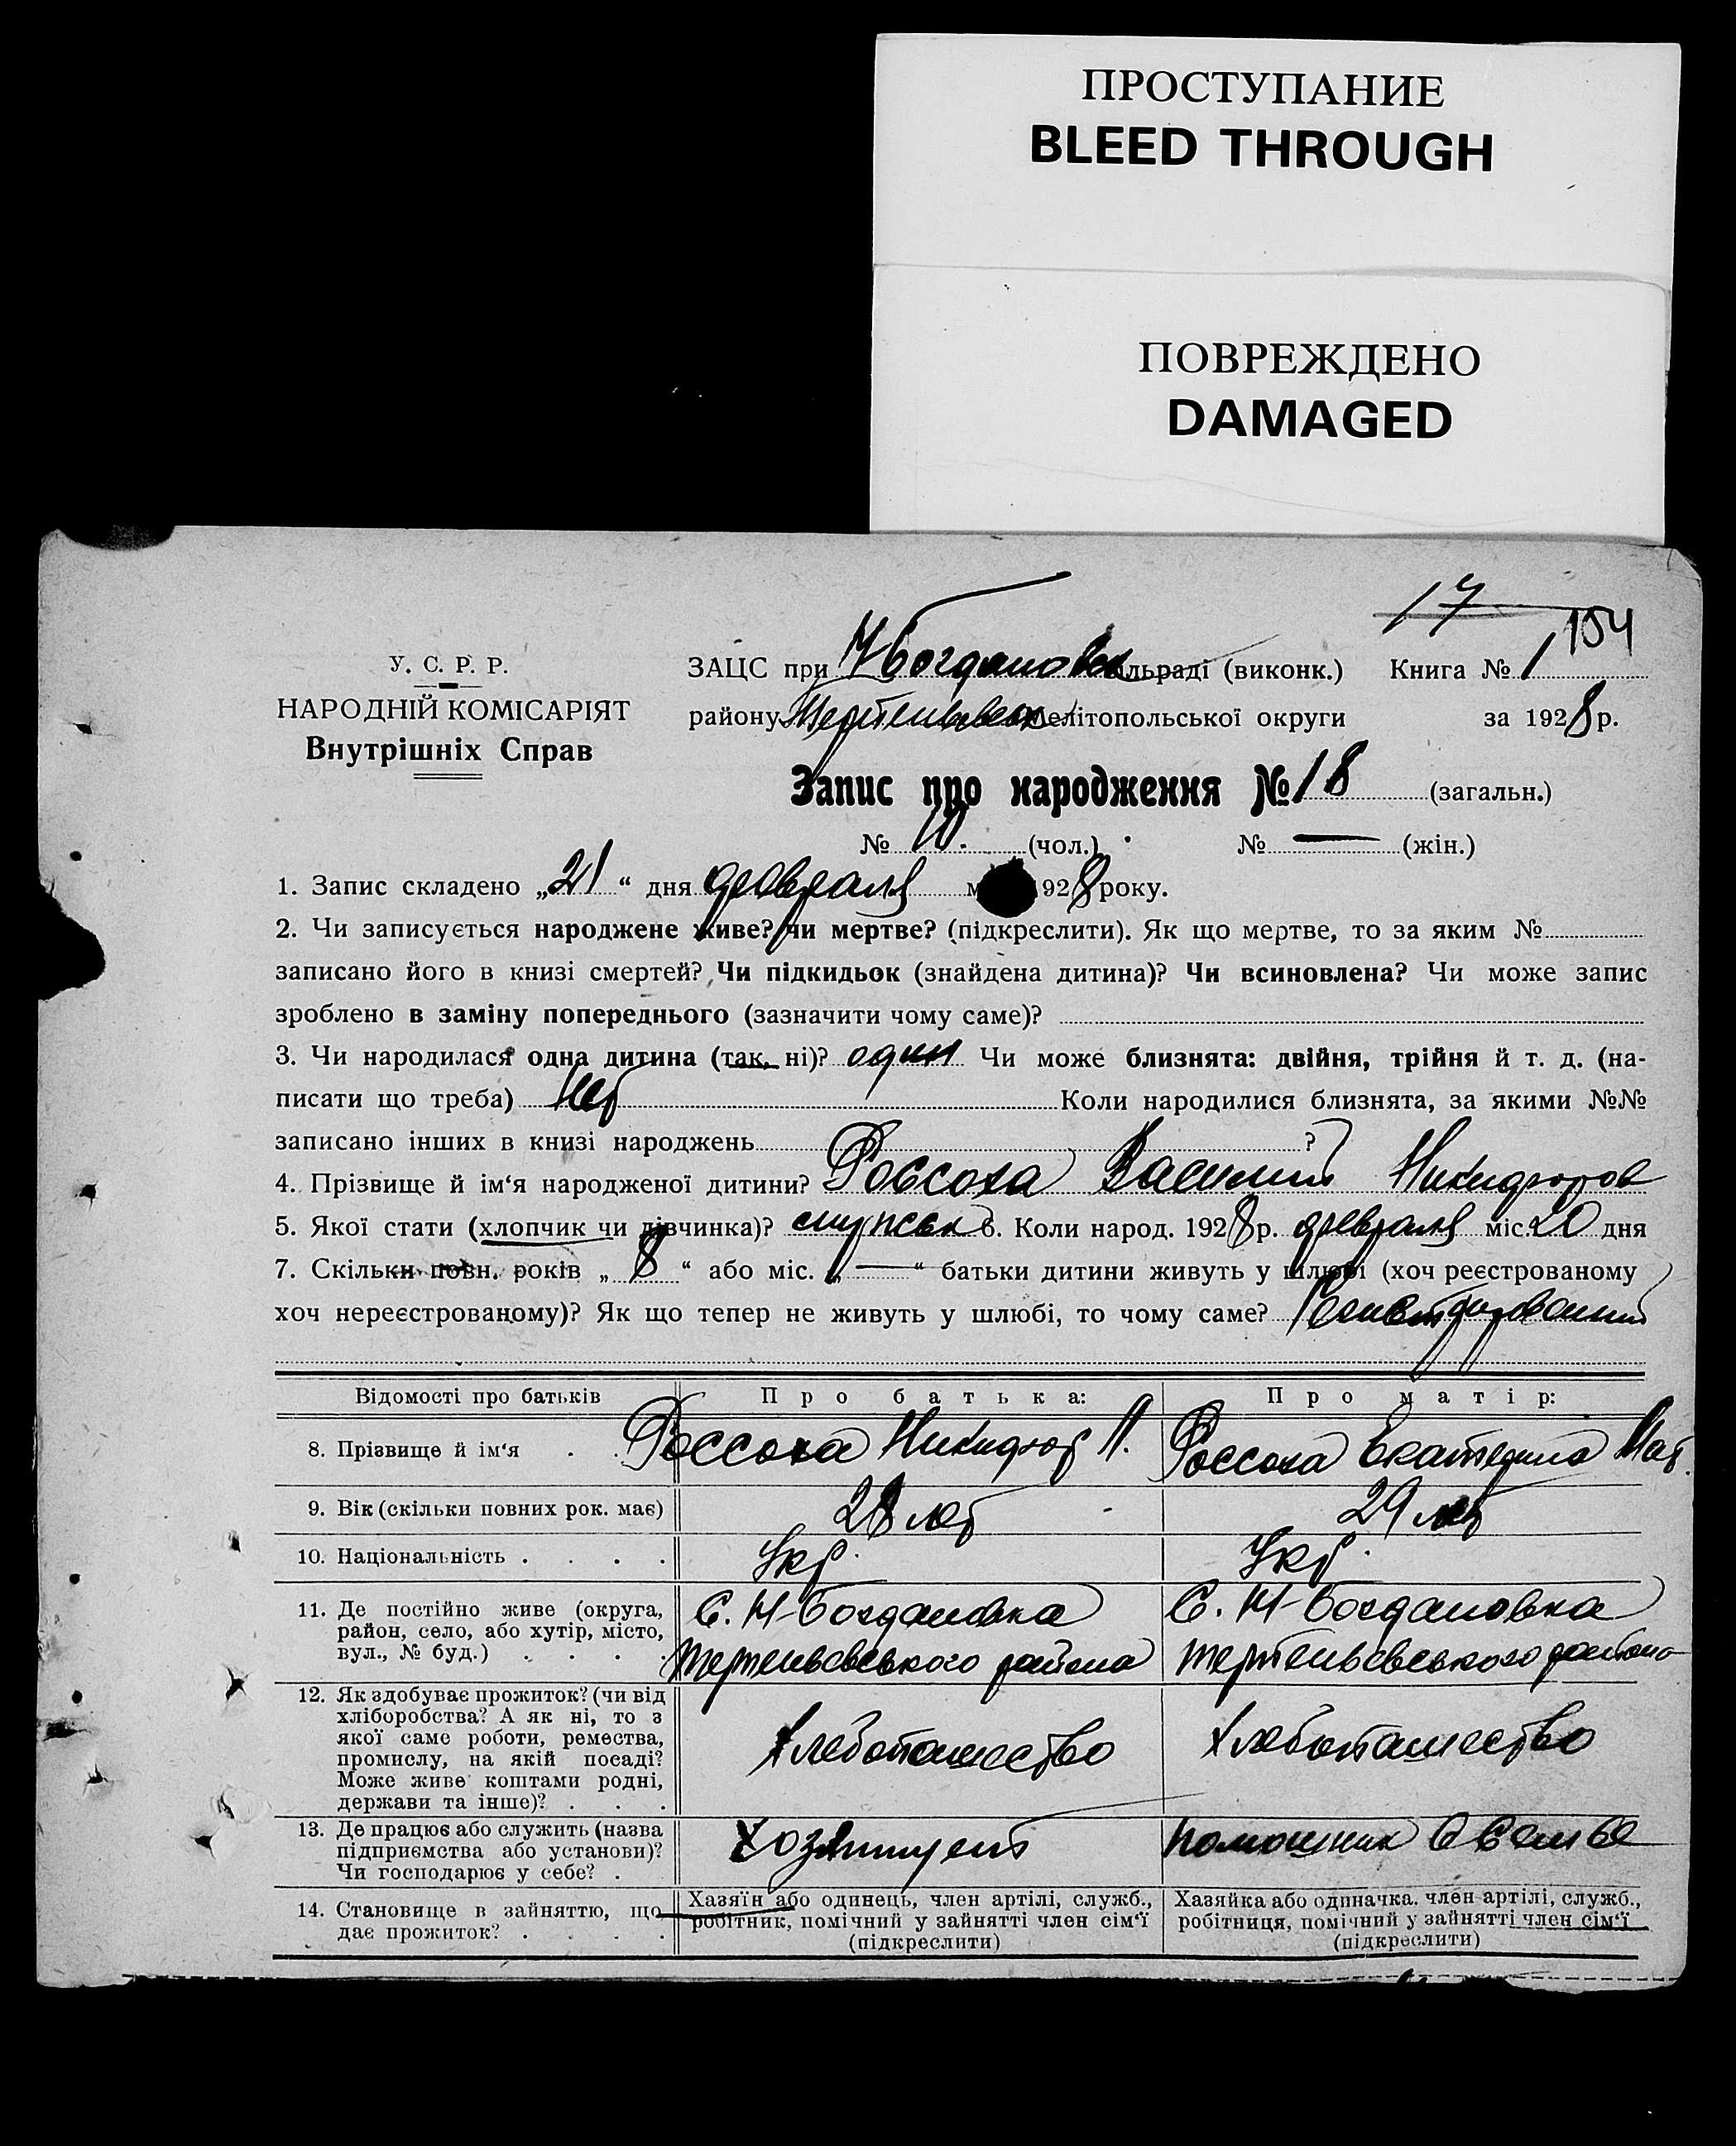 ПРОСТУПАНИЕ
BLEED THROUGH
ПОВРЕЖДЕНО
DAMAGED
17
154
У. С. Р. Р.
НАРОДНІЙ КОМІСАРІЯТ
Внутрішніх Справ
ЗАЦС при Н Богдановск ільраді (виконк.) Книга № 1
району елітопольської округи за 1928 р.
Запис про народження № 18 (загальн.)
№ 10. (чол.) № — (жін.)
1. Запис складено „21“ дня февраля м 1928 року.
2. Чи записується народжене живе? чи мертве? (підкреслити). Як що мертве, то за яким №
записано його в книзі смертей? Чи підкидьок (знайдена дитина)? Чи всиновлена? Чи може запис
зроблено в заміну попереднього (зазначити чому саме)?
3. Чи народилася одна дитина (так, ні)? один Чи може близнята: двійня, трійня й т. д. (на-
писати що треба) Нет Коли народилися близнята, за якими №№
записано інших в книзі народжень ?
4. Прізвище й ім‘я народженої дитини? Россоха Василий Никифоров
5. Якої стати (хлопчик чи дівчинка)? мужск 6. Коли народ. 1928 р. февраля міс. 20 дня
7. Скільки повн. років „8“ або міс. „—“ батьки дитини живуть у шлюбі (хоч реєстрованому
хоч нереєстрованому)? Як що тепер не живуть у шлюбі, то чому саме?
Відомості про батьків Про батька: Про матір:
8. Прізвище й ім‘я Россоха Никифор Л. Россоха Екатерина Мат.
9. Вік (скільки повних рок. має) 28 лет 29 лет
10. Національність Укр. Укр.
11. Де постійно живе (округа, С. Н-Богдановка С. Н-Богдановка
район, село, або хутір, місто, района района
вул., № буд.)
12. Як здобуває прожиток? (чи від
хліборобства? А як ні, то з
якої саме роботи, ремества, Хлебопашество Хлебопашество
промислу, на якій посаді?
Може живе коштами родні,
держави та інше)?
13. Де працює або служить (назва помошник в семье
підприємства або установи)?
Чи господарює у себе?
14. Становище в зайняттю, що Хазяїн або одинець, член артілі, служб., Хазяйка або одиначка. член артілі, служб.,
дає прожиток? робітник, помічний у зайнятті член сім‘ї робітниця, помічний у зайнятті член сім‘ї
(підкреслити) (підкреслити)